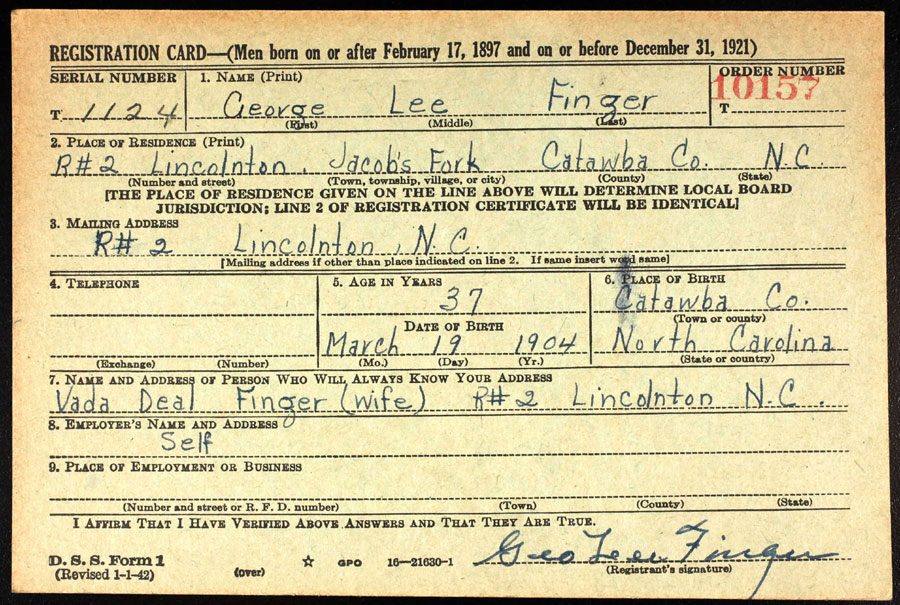 REGISTRATION CARD—(Men born on or after February 17, 1897 and on or before December 31, 1921)
SERIAL NUMBER 1. NAME (Print) ORDER NUMBER
T 1124 George Lee Finger 10157
(First) (Middle) (Last) T
2. PLACE OF RESIDENCE (Print)
R#2 Lincolnton, Jacob's Fork Catawba Co. N.C.
(Number and street) (Town, township, village, or city) (County) (State)
[THE PLACE OF RESIDENCE GIVEN ON THE LINE ABOVE WILL DETERMINE LOCAL BOARD
JURISDICTION; LINE 2 OF REGISTRATION CERTIFICATE WILL BE IDENTICAL]
3. MAILING ADDRESS
R#2 Lincolnton, N.C.
[Mailing address if other than place indicated on line 2. If same insert word same]
4. TELEPHONE 5. AGE IN YEARS 6. PLACE OF BIRTH
37 Catawba Co.
(Town or county)
DATE OF BIRTH
March 19 1904 North Carolina
(Exchange) (Number) (Mo.) (Day) (Yr.) (State or country)
7. NAME AND ADDRESS OF PERSON WHO WILL ALWAYS KNOW YOUR ADDRESS
Vada Deal Finger (wife) R#2 Lincolnton N.C.
8. EMPLOYER'S NAME AND ADDRESS
Self
9. PLACE OF EMPLOYMENT OR BUSINESS
(Number and street or R. F. D. number) (Town) (County) (State)
I AFFIRM THAT I HAVE VERIFIED ABOVE ANSWERS AND THAT THEY ARE TRUE.
D. S. S. Form 1 ☆ GPO 16—21630-1 Geo Lee Finger
(Revised 1-1-42) (over) (Registrant's signature)